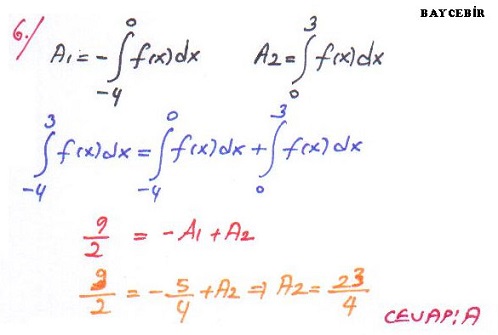 BAYCEBİR
6./ A₁ = -∫₋₄⁰ f(x)dx A₂ = ∫₀³ f(x)dx
∫₋₄³ f(x)dx = ∫₋₄⁰ f(x)dx + ∫₀³ f(x)dx
9/2 = -A₁ + A₂
9/2 = -5/4 + A₂ ⇒ A₂ = 23/4
CEVAP: A